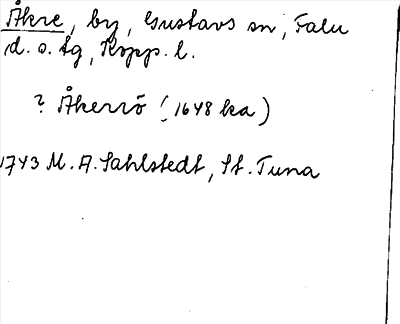 Åkre, by, Gustavs sn, Falu
d. o. tg, Kopp. l.
? Åkerrö (1648 ka)
1743 M. A. Sahlstedt, St. Tuna